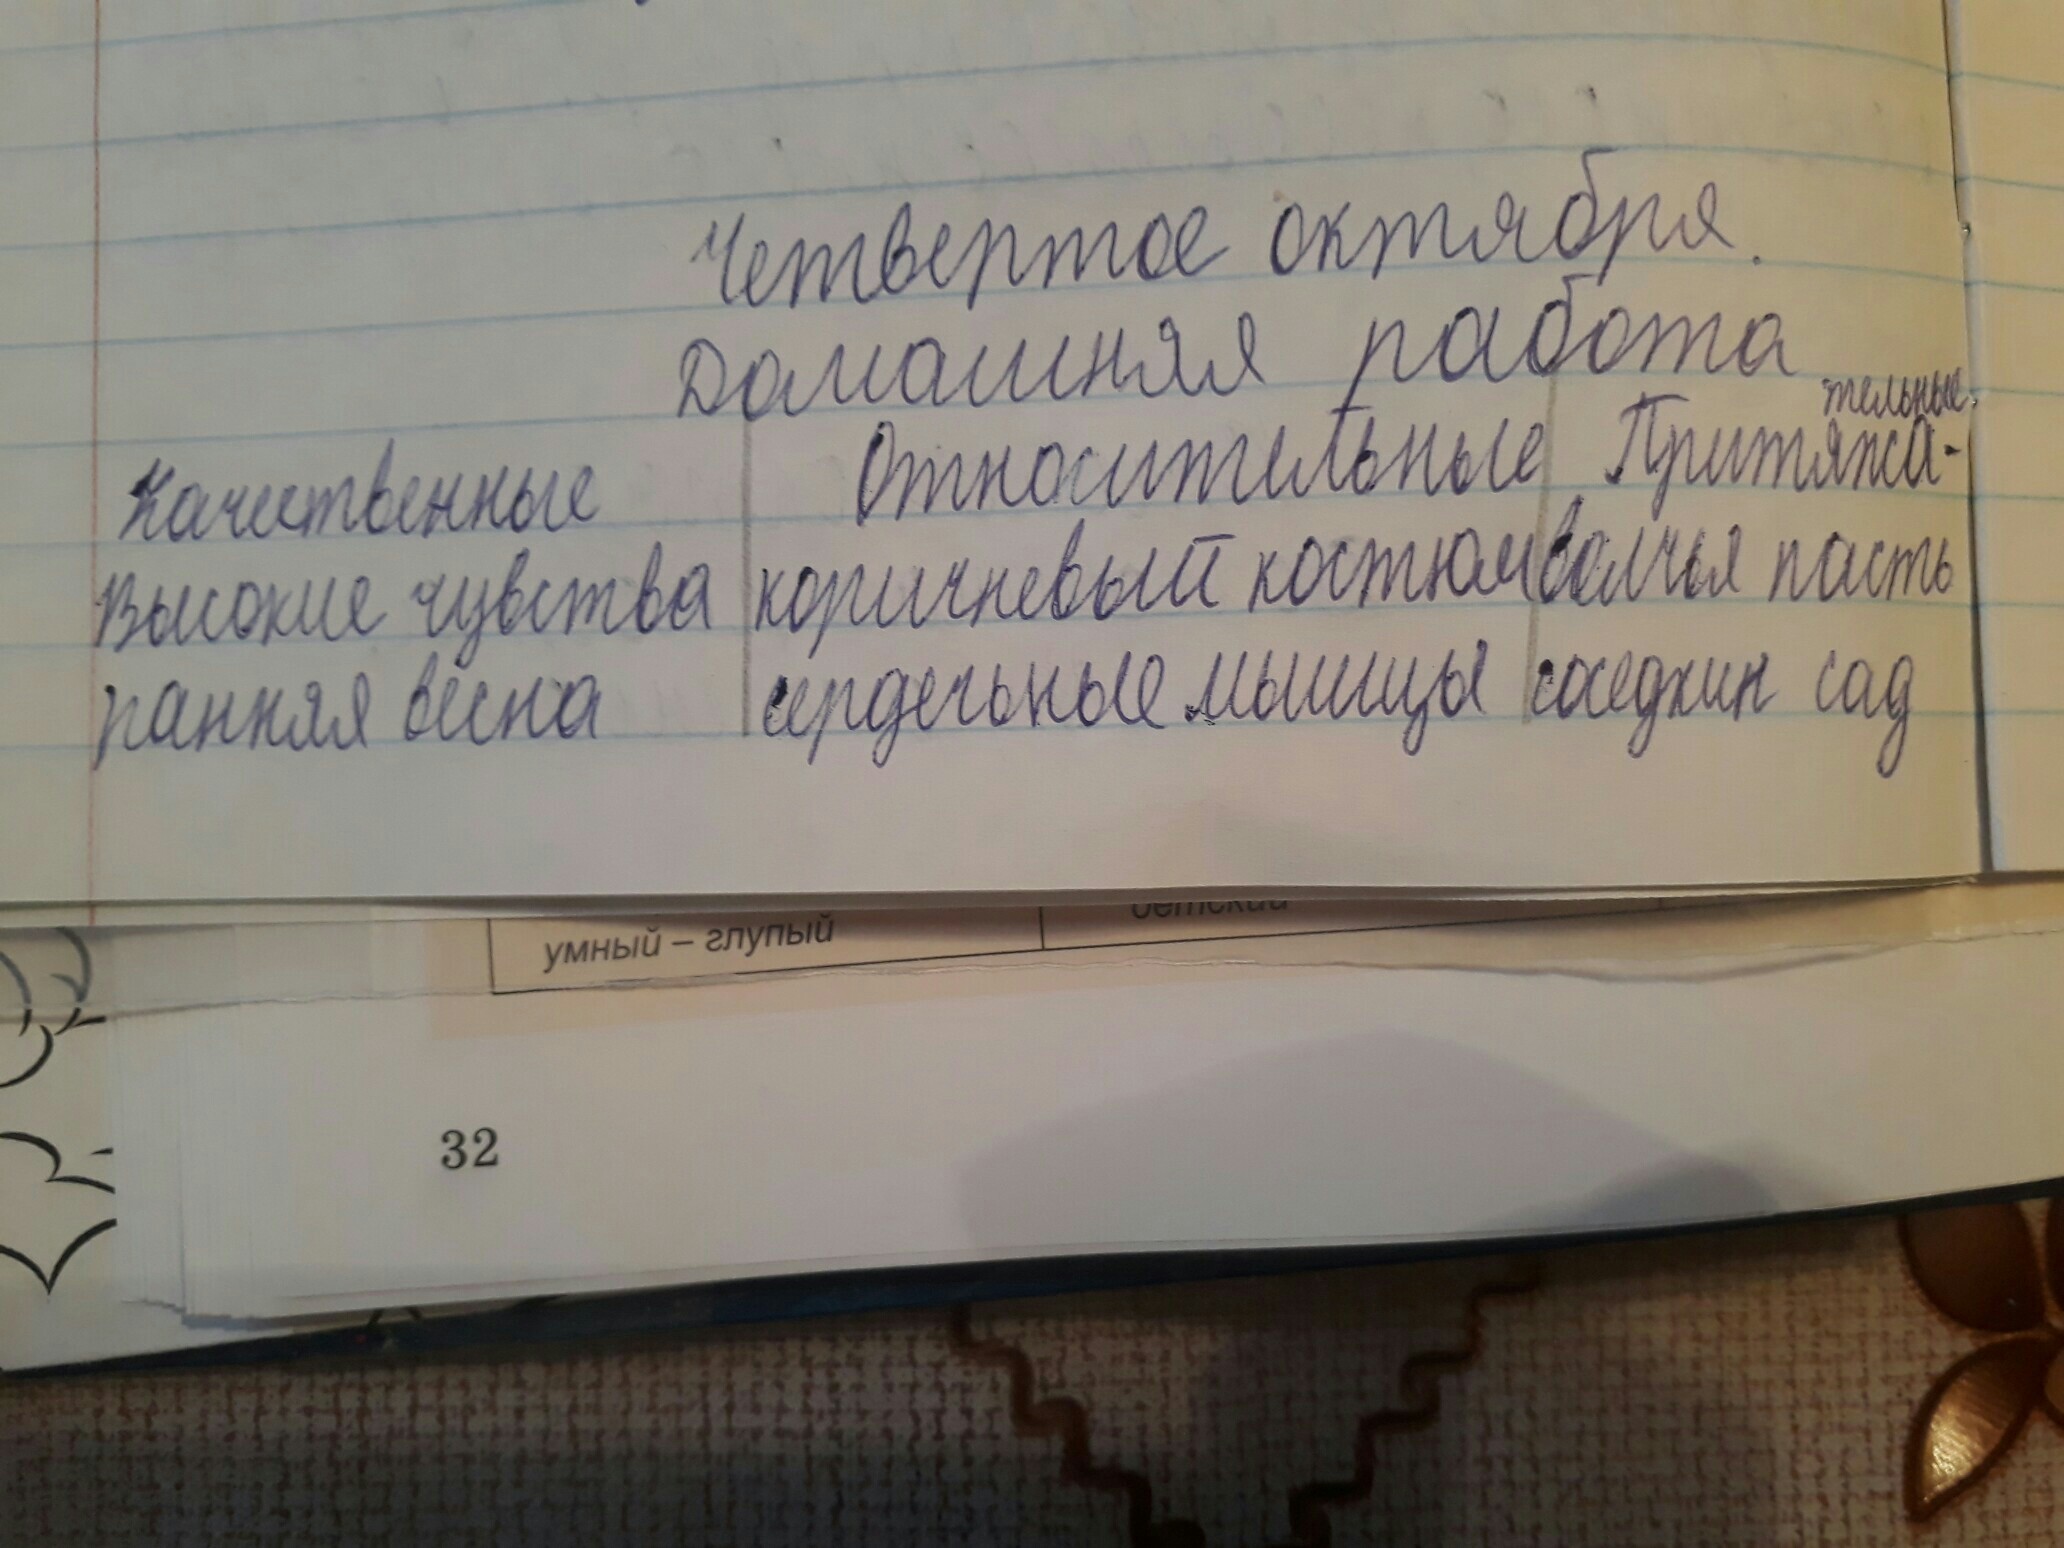 Четвертое октября.
Домашняя работа
Качественные Относительные Притяжа-
тельные.
Высокие чувства коричневый костюм волчья пасть
ранняя весна сердечные мышцы соседкин сад
умный – глупый детский
32